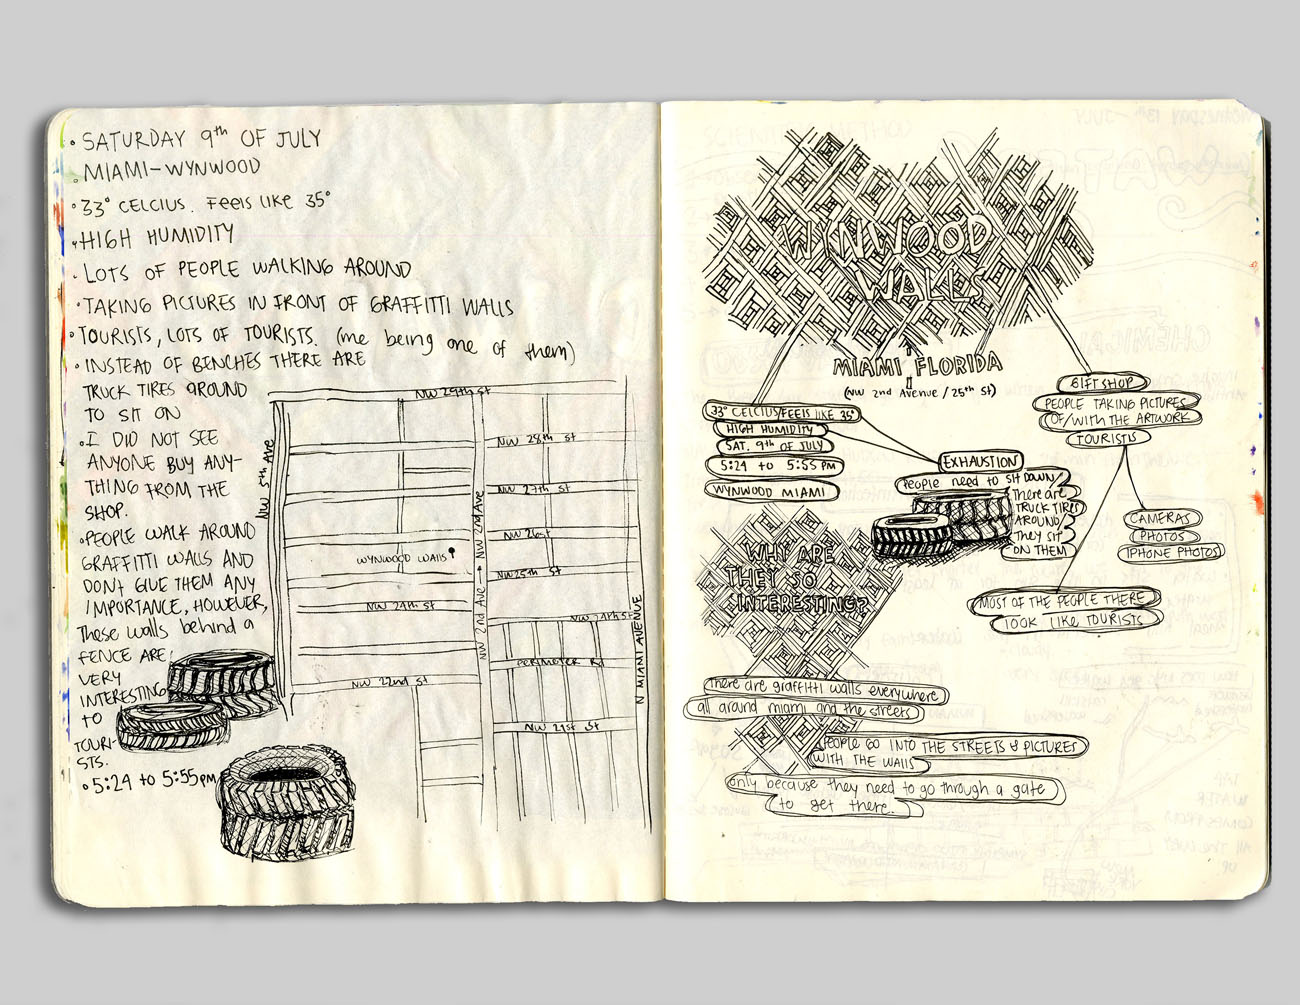 • SATURDAY 9th OF JULY
• MIAMI-WYNWOOD
• 33° CELCIUS. FEELS LIKE 35°
• HIGH HUMIDITY
• LOTS OF PEOPLE WALKING AROUND
• TAKING PICTURES IN FRONT OF GRAFFITTI WALLS
• TOURISTS, LOTS OF TOURISTS. (me being one of them)
• INSTEAD OF BENCHES THERE ARE
TRUCK TIRES AROUND
TO SIT ON
• I DID NOT SEE
ANYONE BUY ANY-
THING FROM THE
SHOP.
• PEOPLE WALK AROUND
GRAFFITI WALLS AND
DON'T GIVE THEM ANY
IMPORTANCE, HOWEVER,
These walls behind a
FENCE ARE
VERY
INTERESTING
TO
TOURI-
STS.
• 5:24 to 5:55pm
NW 29th St
NW 5th Ave
NW 28th St
NW 27th St
NW 2nd Ave
NW 26st
WYNWOOD WALLS
NW 25th St
NW 24th St
NW 24th St
NW 2nd Ave
N MIAMI AVENUE
PERIMETER Rd
NW 22nd St
NW 21st St
WYNWOOD
WALLS
MIAMI FLORIDA
(NW 2nd Avenue / 25th St)
33° CELCIUS/FEELS LIKE 35°
HIGH HUMIDITY
SAT. 9th OF JULY
5:24 to 5:55 PM
WYNWOOD MIAMI
GIFT SHOP
PEOPLE TAKING PICTURES
OF/WITH THE ARTWORK
TOURISTS
EXHAUSTION
People need to SIT DOWN
There are
TRUCK TIRES
AROUND
They sit
ON THEM
CAMERAS
PHOTOS
IPHONE PHOTOS
MOST OF THE PEOPLE THERE
LOOK LIKE TOURISTS
WHY ARE
THEY SO
INTERESTING?
There are graffitti walls everywhere
all around miami and the streets
PEOPLE GO INTO THE STREETS & PICTURES
WITH THE WALLS
only because they need to go through a gate
to get there.